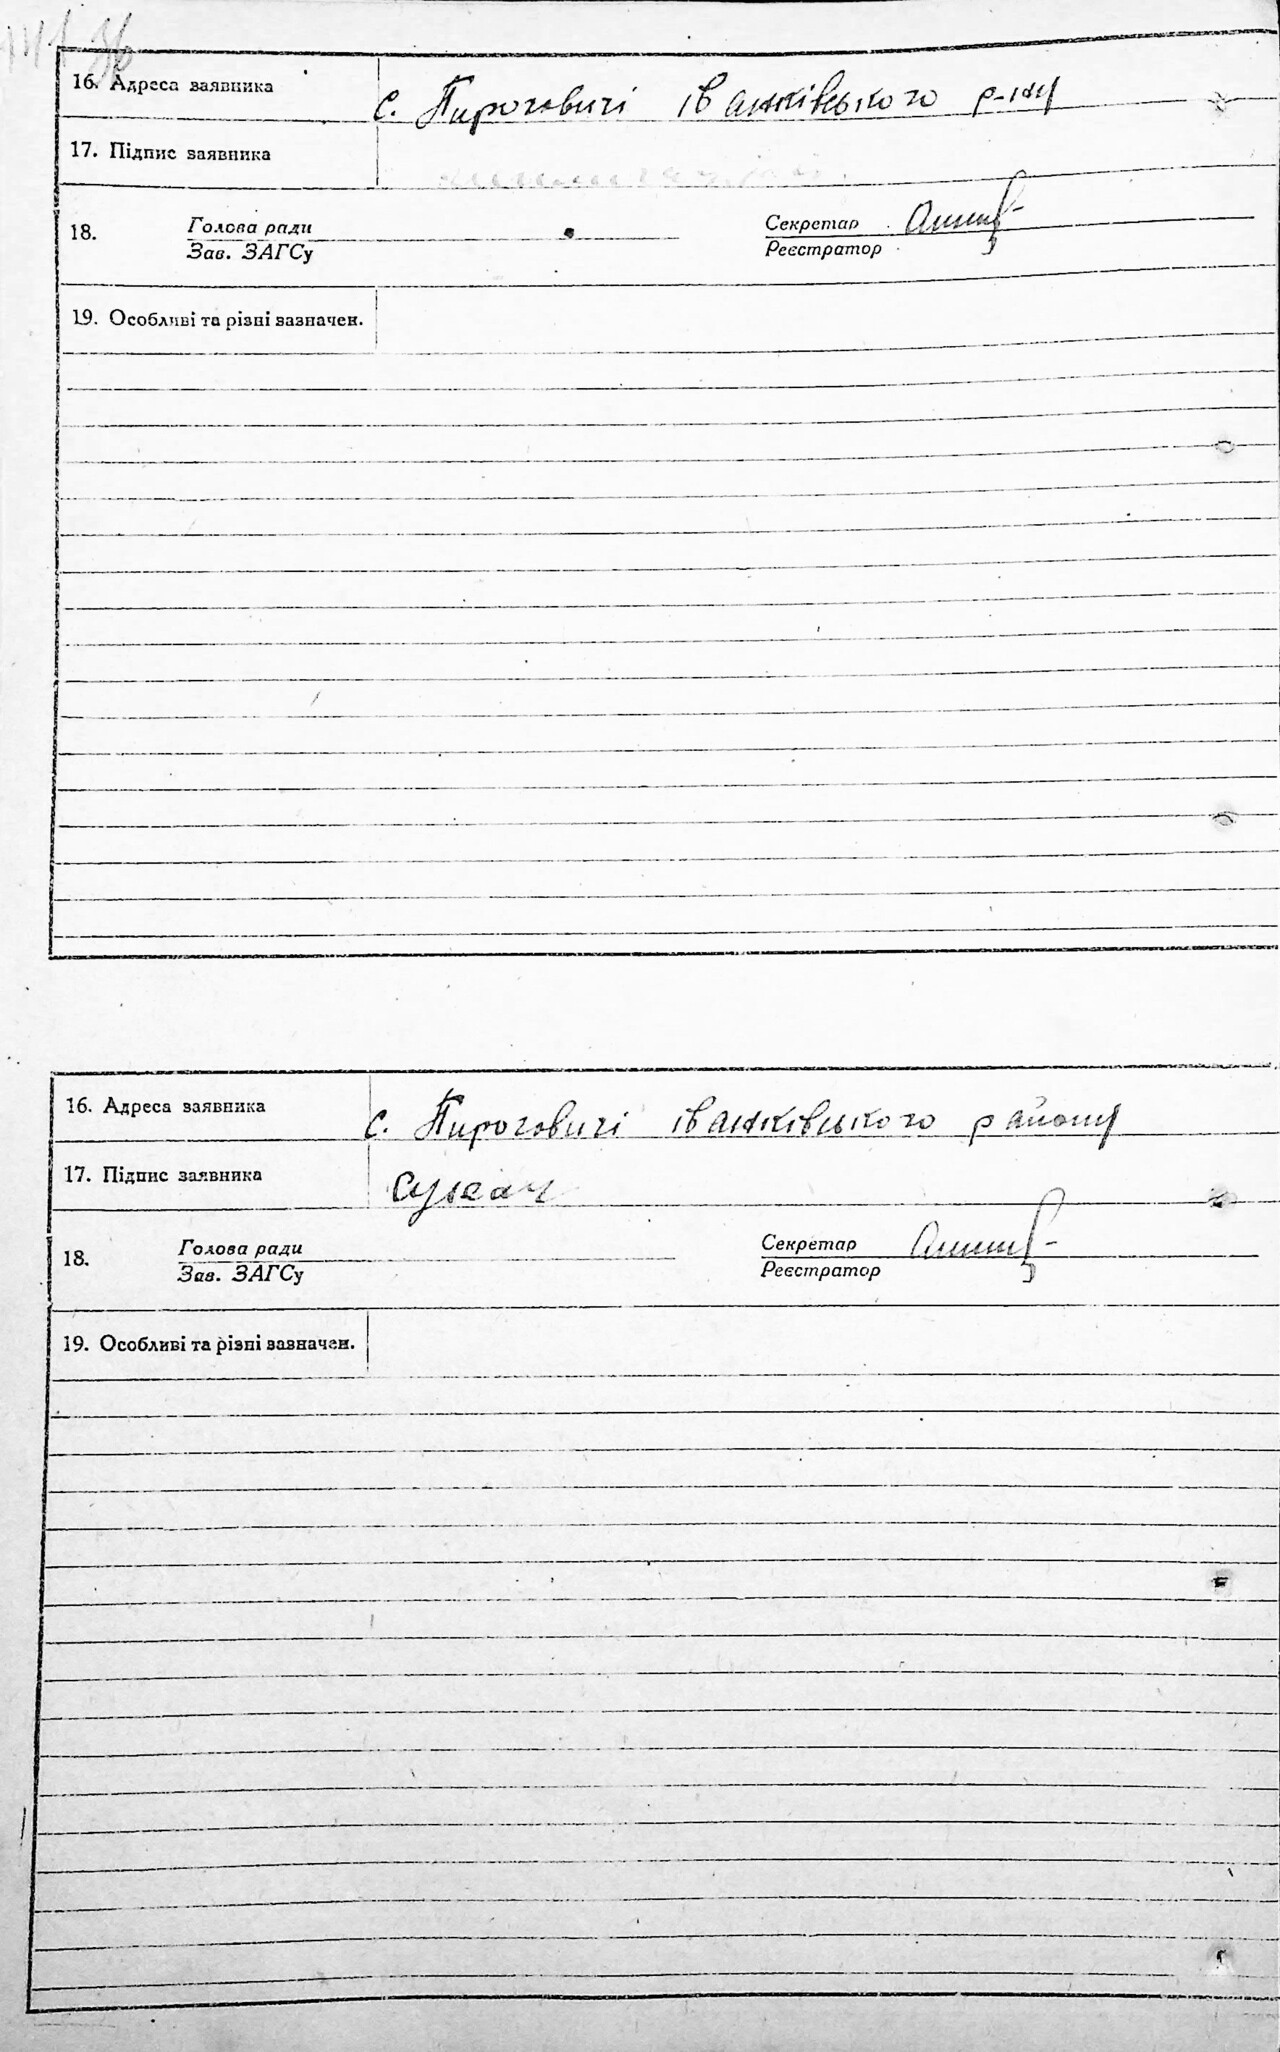 16. Адреса заявника с. Пироговичі Іванківського р-ну
17. Підпис заявника
18. Голова ради Секретар
Зав. ЗАГСу Реєстратор
19. Особливі та різні зазначен.
16. Адреса заявника с. Пироговичі Іванківського району
17. Підпис заявника Сукач
18. Голова ради Секретар
Зав. ЗАГСу Реєстратор
19. Особливі та різні зазначен.